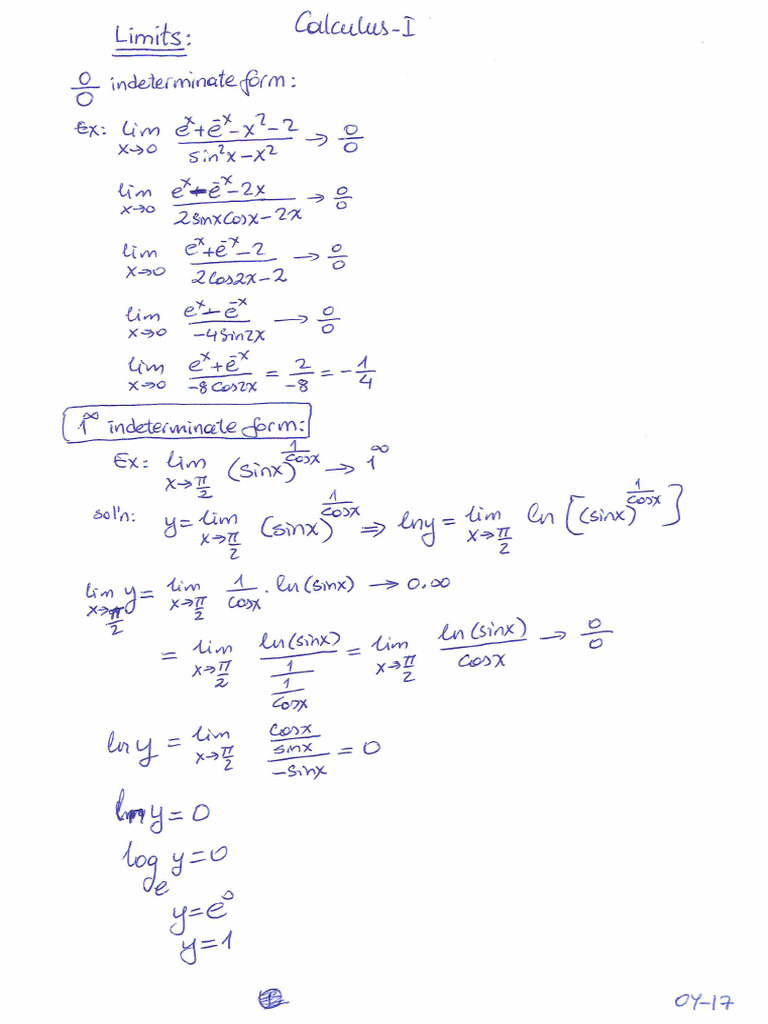 Calculus-I
Limits:
0/0 indeterminate form:
Ex: lim x→0 (eˣ+e⁻ˣ-x²-2)/(sin²x-x²) → 0/0
lim x→0 (eˣ-e⁻ˣ-2x)/(2sinxcosx-2x) → 0/0
lim x→0 (eˣ+e⁻ˣ-2)/(2cos2x-2) → 0/0
lim x→0 (eˣ-e⁻ˣ)/(-4sin2x) → 0/0
lim x→0 (eˣ+e⁻ˣ)/(-8cos2x) = 2/-8 = -1/4
1^∞ indeterminate form:
Ex: lim x→π/2 (sinx)^(1/cosx) → 1^∞
sol'n: y = lim x→π/2 (sinx)^(1/cosx) ⇒ lny = lim x→π/2 ln[(sinx)^(1/cosx)]
lim x→π/2 y = lim x→π/2 1/cosx · ln(sinx) → 0.∞
= lim x→π/2 ln(sinx)/(1/(1/cosx)) = lim x→π/2 ln(sinx)/cosx → 0/0
lny = lim x→π/2 (cosx/sinx)/(-sinx) = 0
ln y = 0
logₑ y = 0
y = e⁰
y = 1
1
OY-17